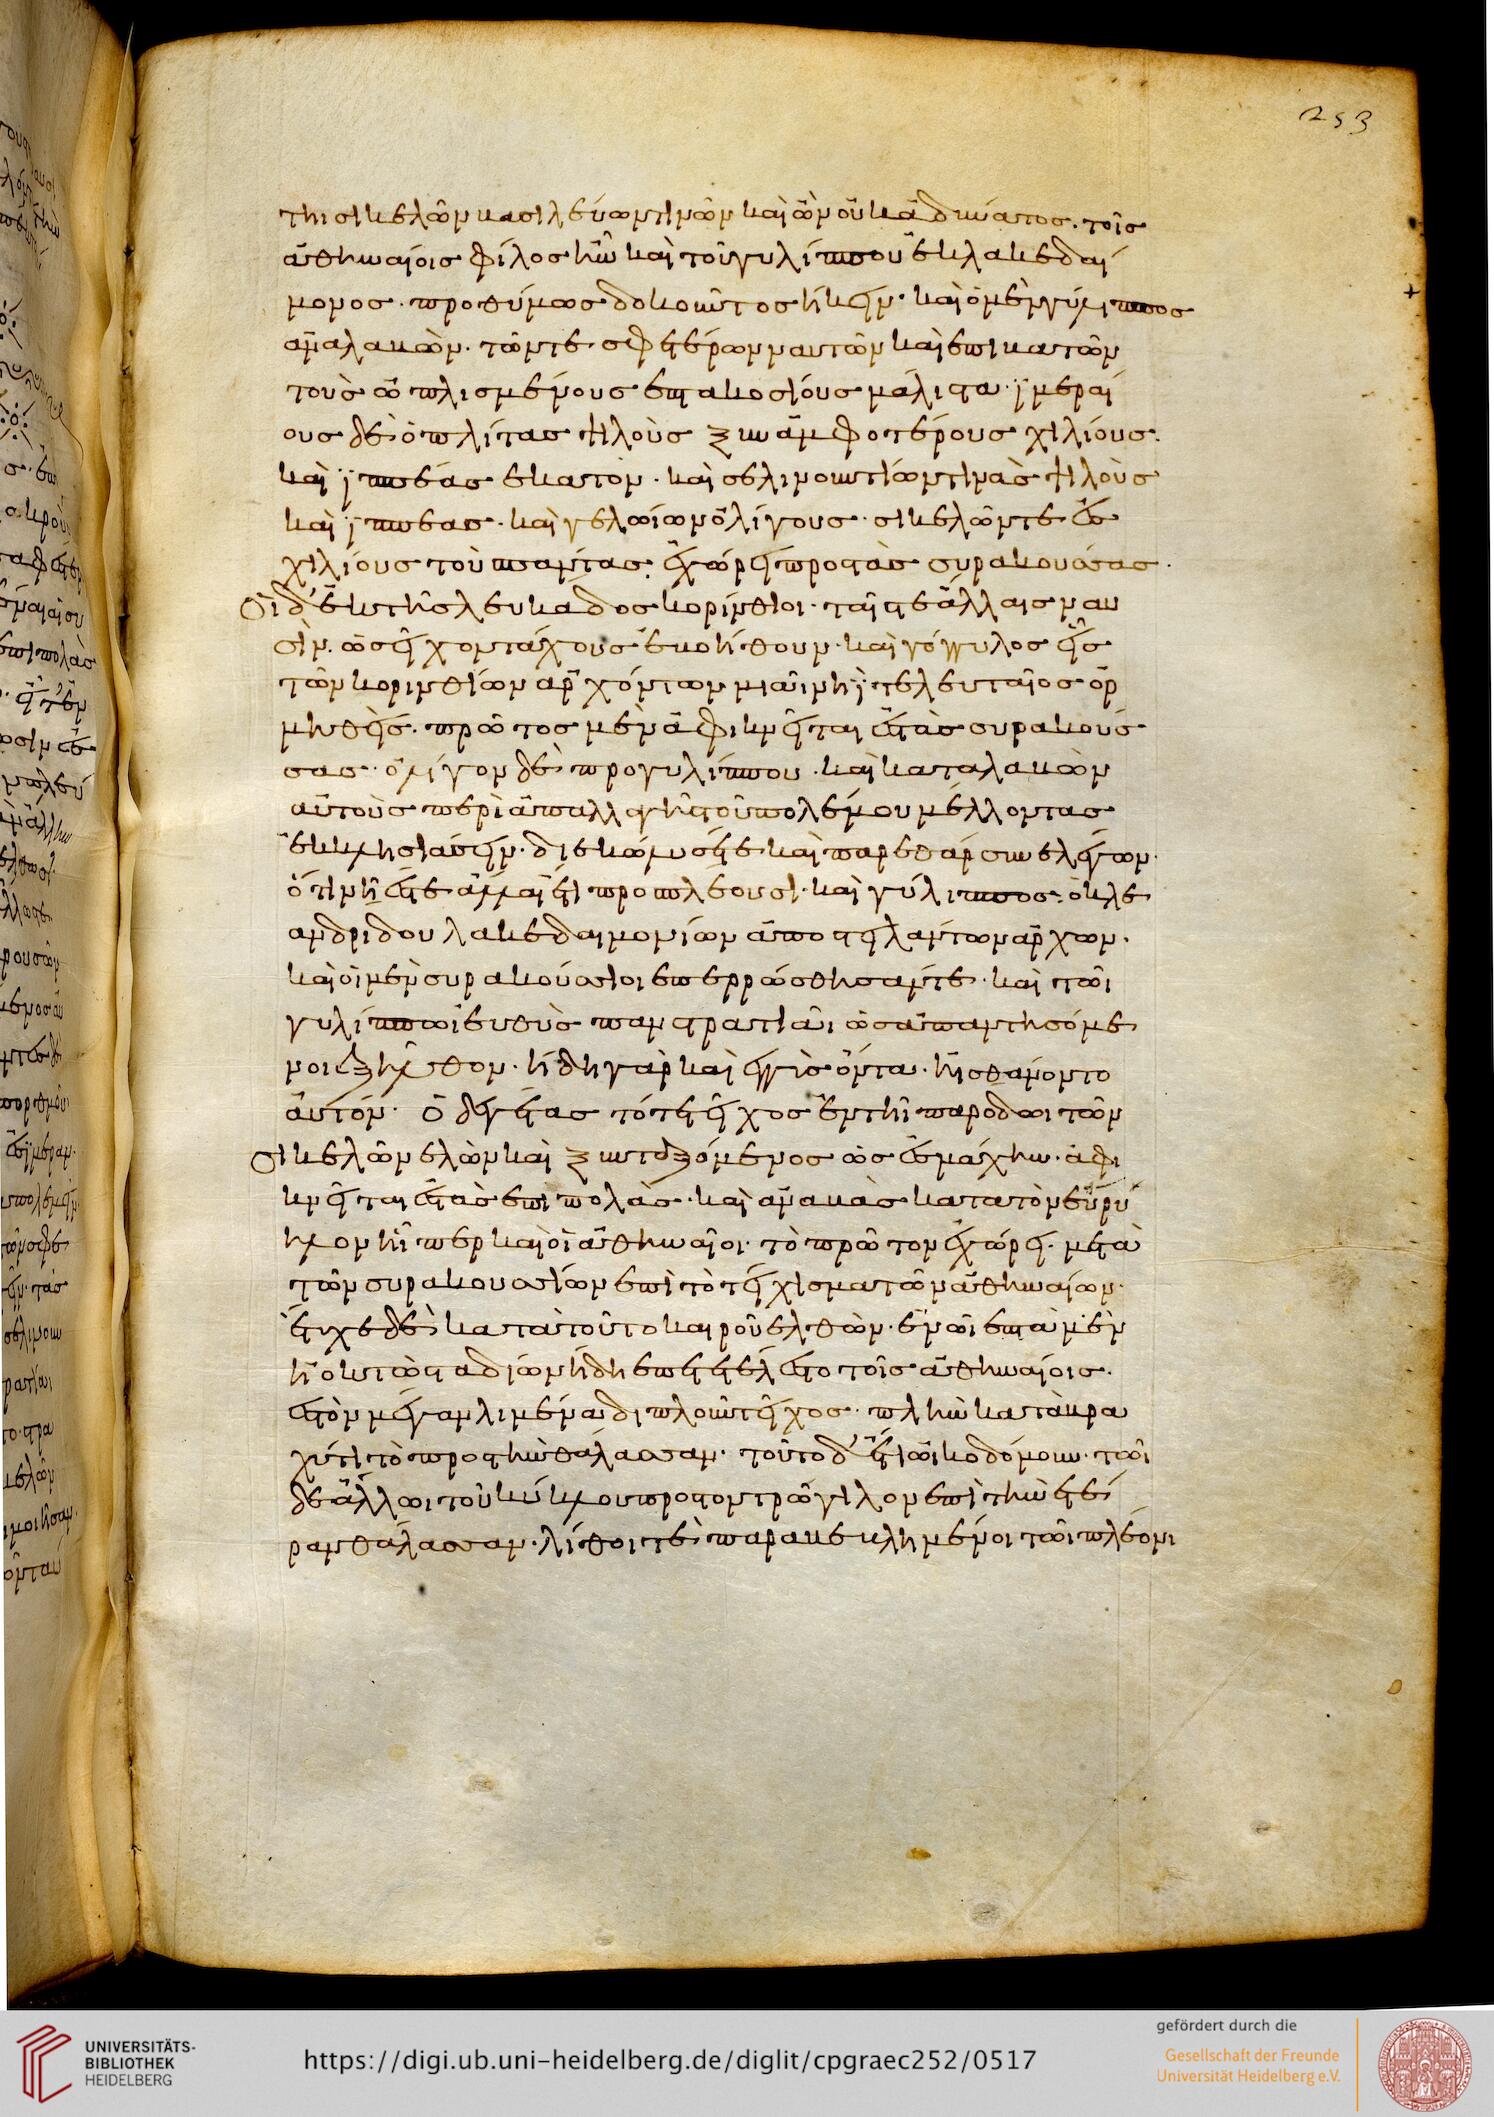 253
τηι σικελῶν βασιλεύων τινῶν καὶ ὢν οὐκ ἀδύνατος. τοῖς
ἀθηναίοις φίλος ἦν καὶ τοῦ γυλίππου ἐκ λακεδαί
μονος. προθύμως δοκοῦντος ἥκειν. καὶ ὁ μὲν γύλιππος
ἀναλαβὼν. τῶν τε σφετέρων ναυτῶν καὶ ἐπιβατῶν
τοὺς ὡπλισμένους ἑπτακοσίους μάλιστα. ἱμεραί
ους δὲ ὁπλίτας ψιλοὺς ξυναμφοτέρους χιλίους.
καὶ ἱππέας ἑκατὸν. καὶ σελινουντίων τινὰς ψιλοὺς
καὶ ἱππέας. καὶ γελώιων ὀλίγους. σικελῶν τε ἐς
χιλίους τοὺς πάντας. ἐχώρει πρὸς τὰς συρακούσσας.
οἱ δ' ἐκ τῆς λευκάδος κορίνθιοι. ταῖς τε ἄλλαις ναυ
σὶν. ὡς εἶχον τάχους ἐβοήθουν. καὶ γόγγυλος εἷς
τῶν κορινθίων ἀρχόντων μιᾶι νηῒ τελευταῖος ὁρ
μηθεὶς. πρῶτος μὲν ἀφικνεῖται ἐς τὰς συρακούσ
σας. ὀλίγον δὲ πρὸ γυλίππου. καὶ καταλαβὼν
αὐτοὺς περὶ ἀπαλλαγῆς τοῦ πολέμου μέλλοντας
ἐκκλησιάσειν. διεκώλυσέ τε καὶ παρεθάρσυνε λέγων.
ὅτι νῆές τε ἄλλαι ἔτι προσπλέουσι. καὶ γύλιππος. ὁ κλε
ανδρίδου λακεδαιμονίων ἀποστειλάντων ἄρχων.
καὶ οἱ μὲν συρακούσσιοι ἐπερρώσθησάν τε. καὶ τῶι
γυλίππωι εὐθὺς πανστρατιᾶι ὡς ἀπαντησόμε
νοι ἐξῆλθον. ἤδη γὰρ καὶ ἐγγὺς ὄντα. ἠισθάνοντο
αὐτόν. ὁ δὲ γέτας τότε τεῖχος ἐν τῆι παρόδωι τῶν
σικελῶν ἑλὼν καὶ ξυνταξόμενος ὡς ἐς μάχην. ἀφι
κνεῖται ἐς τὰς ἐπιπολὰς. καὶ ἀναβὰς κατὰ τὸν εὐρύ
ηλον ἧιπερ καὶ οἱ ἀθηναῖοι. τὸ πρῶτον ἐχώρει. μετὰ
τῶν συρακουσσίων ἐπὶ τὸ τείχισμα τῶν ἀθηναίων.
ἔτυχε δὲ κατὰ τοῦτο καιροῦ ἐλθὼν. ἐν ὧι ἑπτὰ μὲν
ἢ ὀκτὼ σταδίων ἤδη ἐπετετέλεστο τοῖς ἀθηναίοις.
ἐς τὸν μέγαν λιμένα διπλοῦν τεῖχος. πλὴν κατὰ βρα
χύ τι τὸ πρὸς τὴν θάλασσαν. τοῦτο δ' ἔτι ὠικοδόμουν. τῶι
δὲ ἄλλωι τοῦ κύκλου πρὸς τὸν τρώγιλον ἐπὶ τὴν ἑτέ
ραν θάλασσαν. λίθοι τε παραβεβλημένοι τῶι πλέονι
UNIVERSITÄTS-
BIBLIOTHEK
HEIDELBERG
https://digi.ub.uni-heidelberg.de/diglit/cpgraec252/0517
gefördert durch die
Gesellschaft der Freunde
Universität Heidelberg e.V.